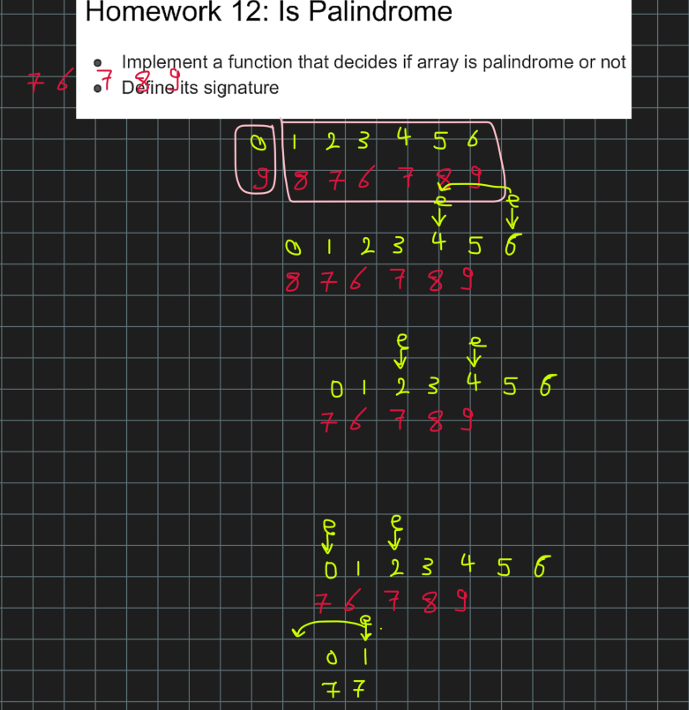 Homework 12: Is Palindrome
Implement a function that decides if array is palindrome or not
7 6 7 8 9
Define its signature
0 1 2 3 4 5 6
9 8 7 6 7 8 9
e e
0 1 2 3 4 5 6
8 7 6 7 8 9
e e
0 1 2 3 4 5 6
7 6 7 8 9
e e
0 1 2 3 4 5 6
7 6 7 8 9
e
0 1
7 7